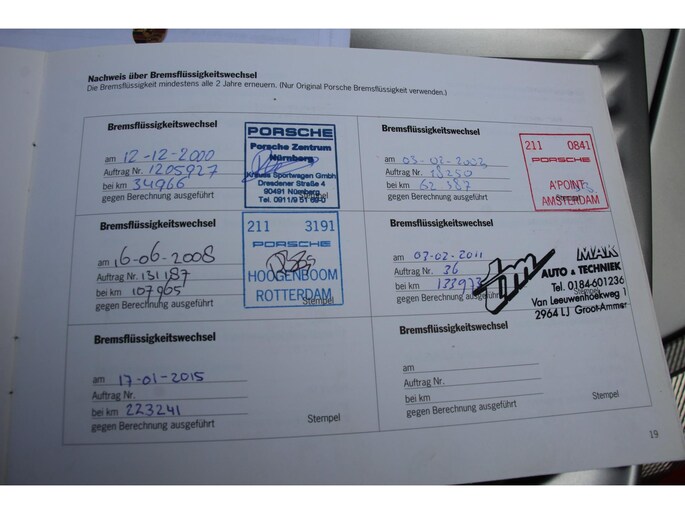 Nachweis über Bremsflüssigkeitswechsel
Die Bremsflüssigkeit mindestens alle 2 Jahre erneuern. (Nur Original Porsche Bremsflüssigkeit verwenden.)
Bremsflüssigkeitswechsel
am 12-12-2000
Auftrag Nr. 1205927
bei km 34966
gegen Berechnung ausgeführt
Stempel
PORSCHE
Porsche Zentrum
Nürnberg
Sportwagen GmbH
Dresdener Straße 4
90491 Nürnberg
Tel. 0911/9 51 69-0
Bremsflüssigkeitswechsel
am 03-02-2003
Auftrag Nr. 18250
bei km 62 387
gegen Berechnung ausgeführt
Stempel
211 0841
PORSCHE
A'POINT
AMSTERDAM
Bremsflüssigkeitswechsel
am 16-06-2008
Auftrag Nr. 131187
bei km 107965
gegen Berechnung ausgeführt
Stempel
211 3191
PORSCHE
HOOGENBOOM
ROTTERDAM
Bremsflüssigkeitswechsel
am 07-02-2011
Auftrag Nr. 36
bei km 133973
gegen Berechnung ausgeführt
MAK
AUTO & TECHNIEK
Tel. 0184-601236
Stempel
Van Leeuwenhoekweg 1
2964 LJ Groot-Ammer
Bremsflüssigkeitswechsel
am 17-01-2015
Auftrag Nr.
bei km 223241
gegen Berechnung ausgeführt
Stempel
Bremsflüssigkeitswechsel
am
Auftrag Nr.
bei km
gegen Berechnung ausgeführt
Stempel
19